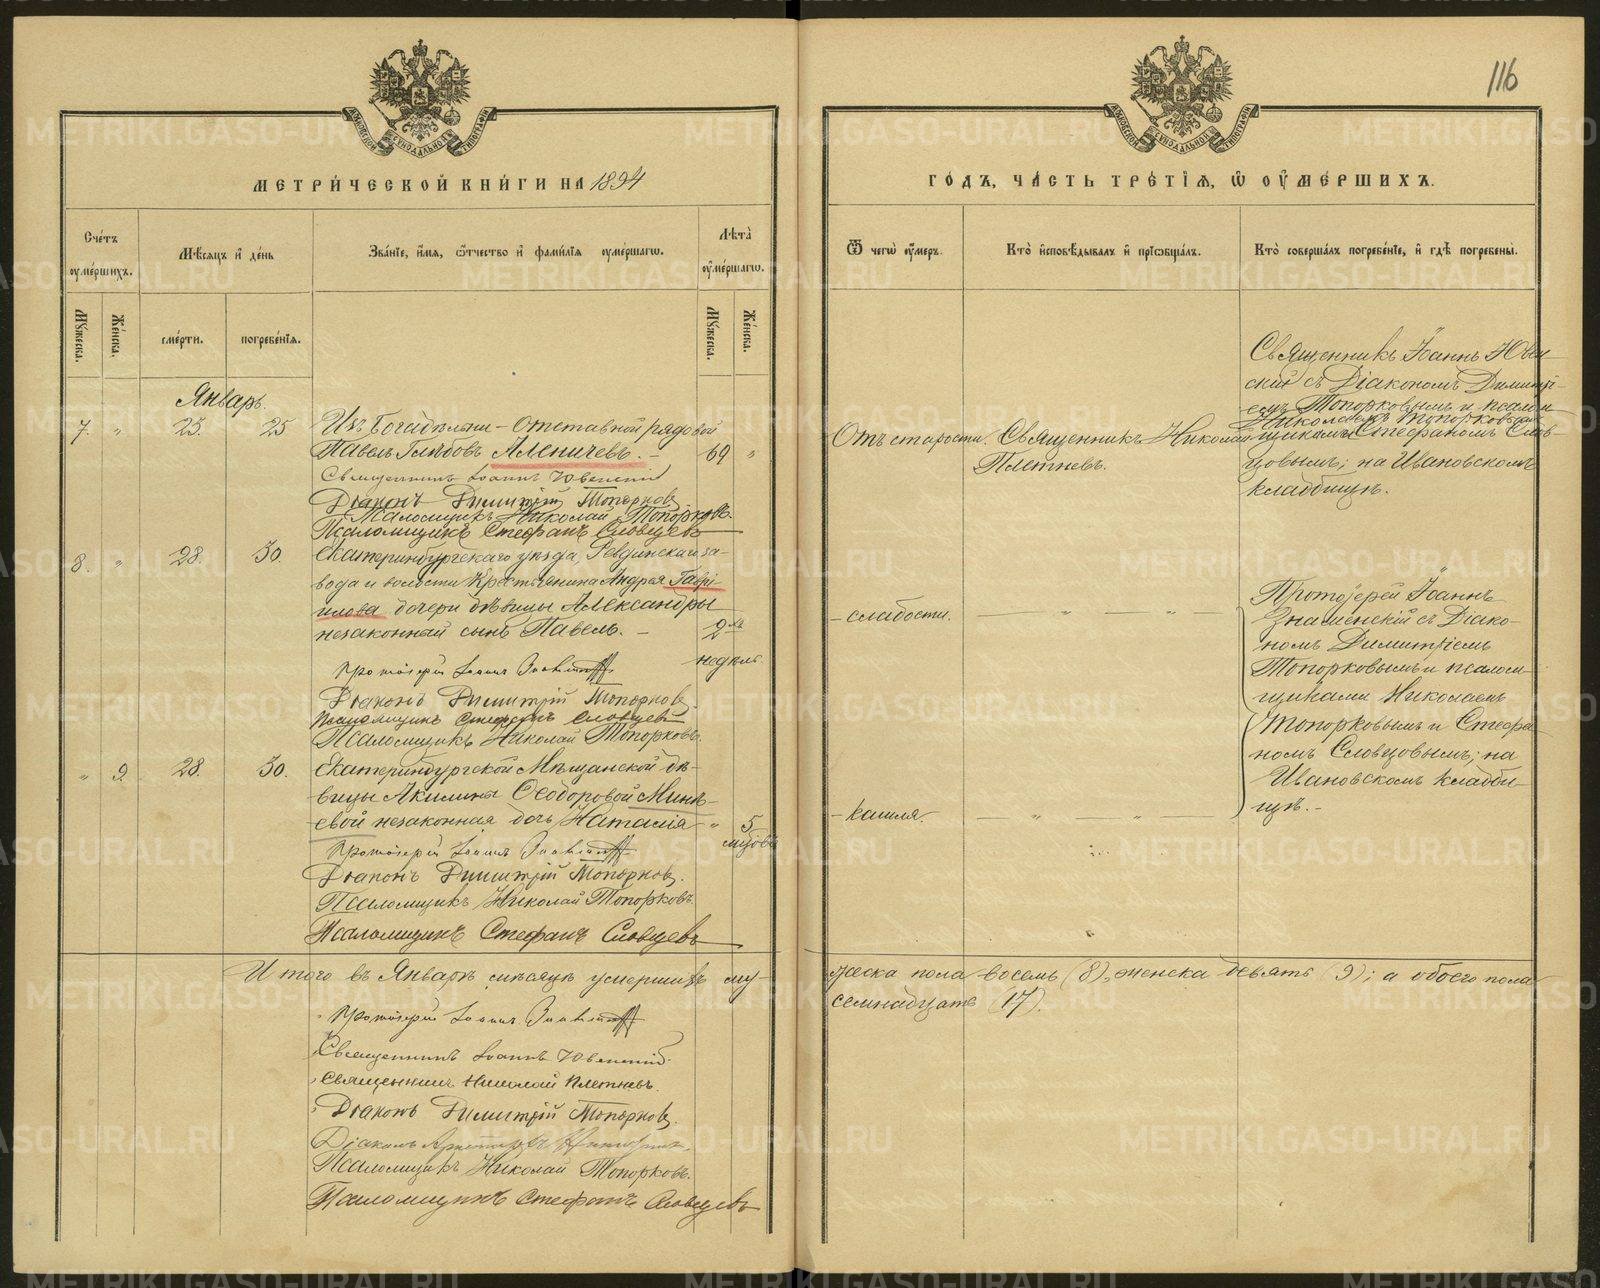 116
МЕТРИЧЕСКОЙ КНИГИ НА 1894
Счетъ умершихъ.
Мѣсяцъ и день
Званіе, имя, отчество и фамилія умершаго.
Лѣта умершаго.
Мужеска.
Женска.
смерти.
погребенія.
Мужеска.
Женска.
Январь.
7. " 23. 25
Изъ Богадѣльни - Отставной рядовой
Павелъ Глѣбовъ Аленичевъ. - 69 "
Священникъ Іоаннъ Ювенскій
Діаконъ Димитрій Топорковъ
Псаломщикъ Николай Топорковъ.
Псаломщикъ Стефанъ Словцевъ
8. " 28. 30.
Екатеринбургскаго уѣзда, Ревдинскаго за-
вода и волости Крестьянина Андрея Гаврі-
илова дочери дѣвицы Александры
незаконный сынъ Павелъ. - 2хъ
недѣль.
Протоіерей Іоаннъ Знаменскій
Діаконъ Димитрій Топорковъ
Псаломщикъ Стефанъ Словцевъ
Псаломщикъ Николай Топорковъ.
" 9. 28. 30.
Екатеринбургской Мѣщанской дѣ-
вицы Акилины Ѳеодоровой Минѣ-
евой незаконная дочь Наталія - " 5
мѣсяцовъ
Протоіерей Іоаннъ Знаменскій
Діаконъ Димитрій Топорковъ.
Псаломщикъ Николай Топорковъ.
Псаломщикъ Стефанъ Словцевъ
Итого въ Январѣ мѣсяцѣ умершихъ му-
Протоіерей Іоаннъ Знаменскій
Священникъ Іоаннъ Ювенскій.
Священникъ Николай Плетневъ.
Діаконъ Димитрій Топорковъ.
Діаконъ
Псаломщикъ Николай Топорковъ.
Псаломщикъ Стефанъ Словцевъ
ГОДЪ, ЧАСТЬ ТРЕТІЯ, Ѡ ОУМЕРШИХЪ.
Ѿ чего умеръ.
Кто исповѣдывалъ и пріобщалъ.
Кто совершалъ погребеніе, и гдѣ погребены.
Отъ старости.
Священникъ Николай
Плетневъ.
Священникъ Іоаннъ Ювен-
скій съ Діакономъ Димитрі-
емъ Топорковымъ и псалом
Николаемъ Топорковымъ
щикомъ Стефаномъ Слов-
цовымъ; на Ивановскомъ
кладбищѣ.
- слабости. " "
Протоіерей Іоаннъ
Знаменскій съ Діако-
номъ Димитріемъ
Топорковымъ и псалом-
щиками Николаемъ
Топорковымъ и Стефа-
номъ Словцовымъ; на
Ивановскомъ кладби-
щѣ. -
- кашля. " "
жеска пола восемь (8), женска девять (9); а обоего пола
семнадцать (17).
METRIKI.GASO-URAL.RU